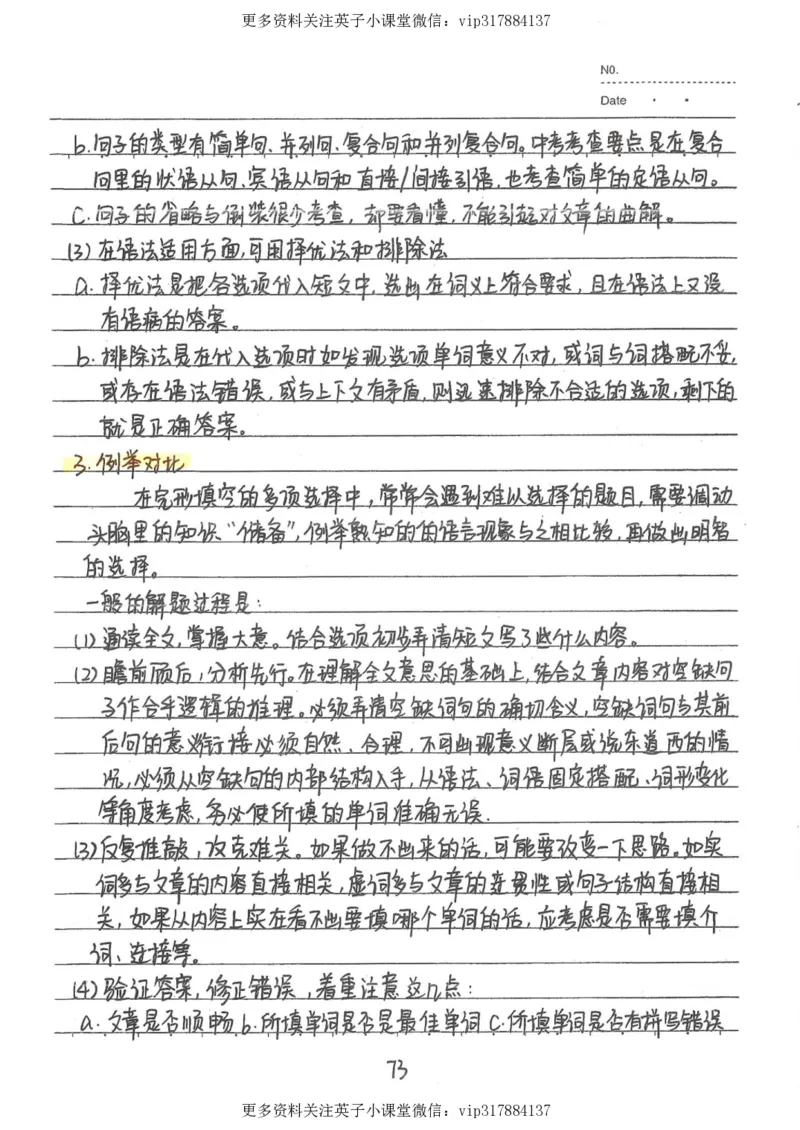 更多资料关注英子小课堂微信：vip317884137
NO.
Date
b.句子的类型有简单句、并列句、复合句和并列复合句。中考考查要点是在复合
句里的状语从句、宾语从句和直接/间接引语,也考查简单的定语从句。
C.句子的省略与倒装很少考查，却要看懂，不能引起对文章的曲解。
(3)在语法适用方面,可用择优法和排除法
a.择优法是把各选项代入短文中,选出在词义上符合要求,且在语法上又没
有语病的答案。
b.排除法是在代入选项时如发现选项单词意义不对,或词与词搭配不妥,
或存在语法错误,或与上下文有矛盾,则迅速排除不合适的选项,剩下的
就是正确答案。
3.例举对比
在完形填空的多项选择中,常常会遇到难以选择的题目,需要调动
头脑里的知识“储备”,例举熟知的的语言现象与之相比较,再做出明智
的选择。
一般的解题过程是:
(1)通读全文,掌握大意。结合选项初步弄清短文写了些什么内容。
(2)瞻前顾后,分析先行。在理解全文意思的基础上,结合文章内容对空缺句
子作合乎逻辑的推理。必须弄清空缺词句的确切含义,空缺词句与其前
后句的意义衔接必须自然、合理,不可出现意义断层或说东道西的情
况,必须从空缺句的内部结构入手,从语法、词语固定搭配、词形变化
等角度考虑,务必使所填的单词准确无误.
(3)反复推敲,攻克难关。如果做不出来的话,可能要改变一下思路。如实
词多与文章的内容直接相关,虚词多与文章的连贯性或句子结构直接相
关,如果从内容上实在看不出要填哪个单词的话,应考虑是否需要填介
词、连接等。
(4)验证答案,修正错误,着重注意这几点:
a.文章是否顺畅 b.所填单词是否是最佳单词 C.所填单词是否有拼写错误
73
更多资料关注英子小课堂微信：vip317884137